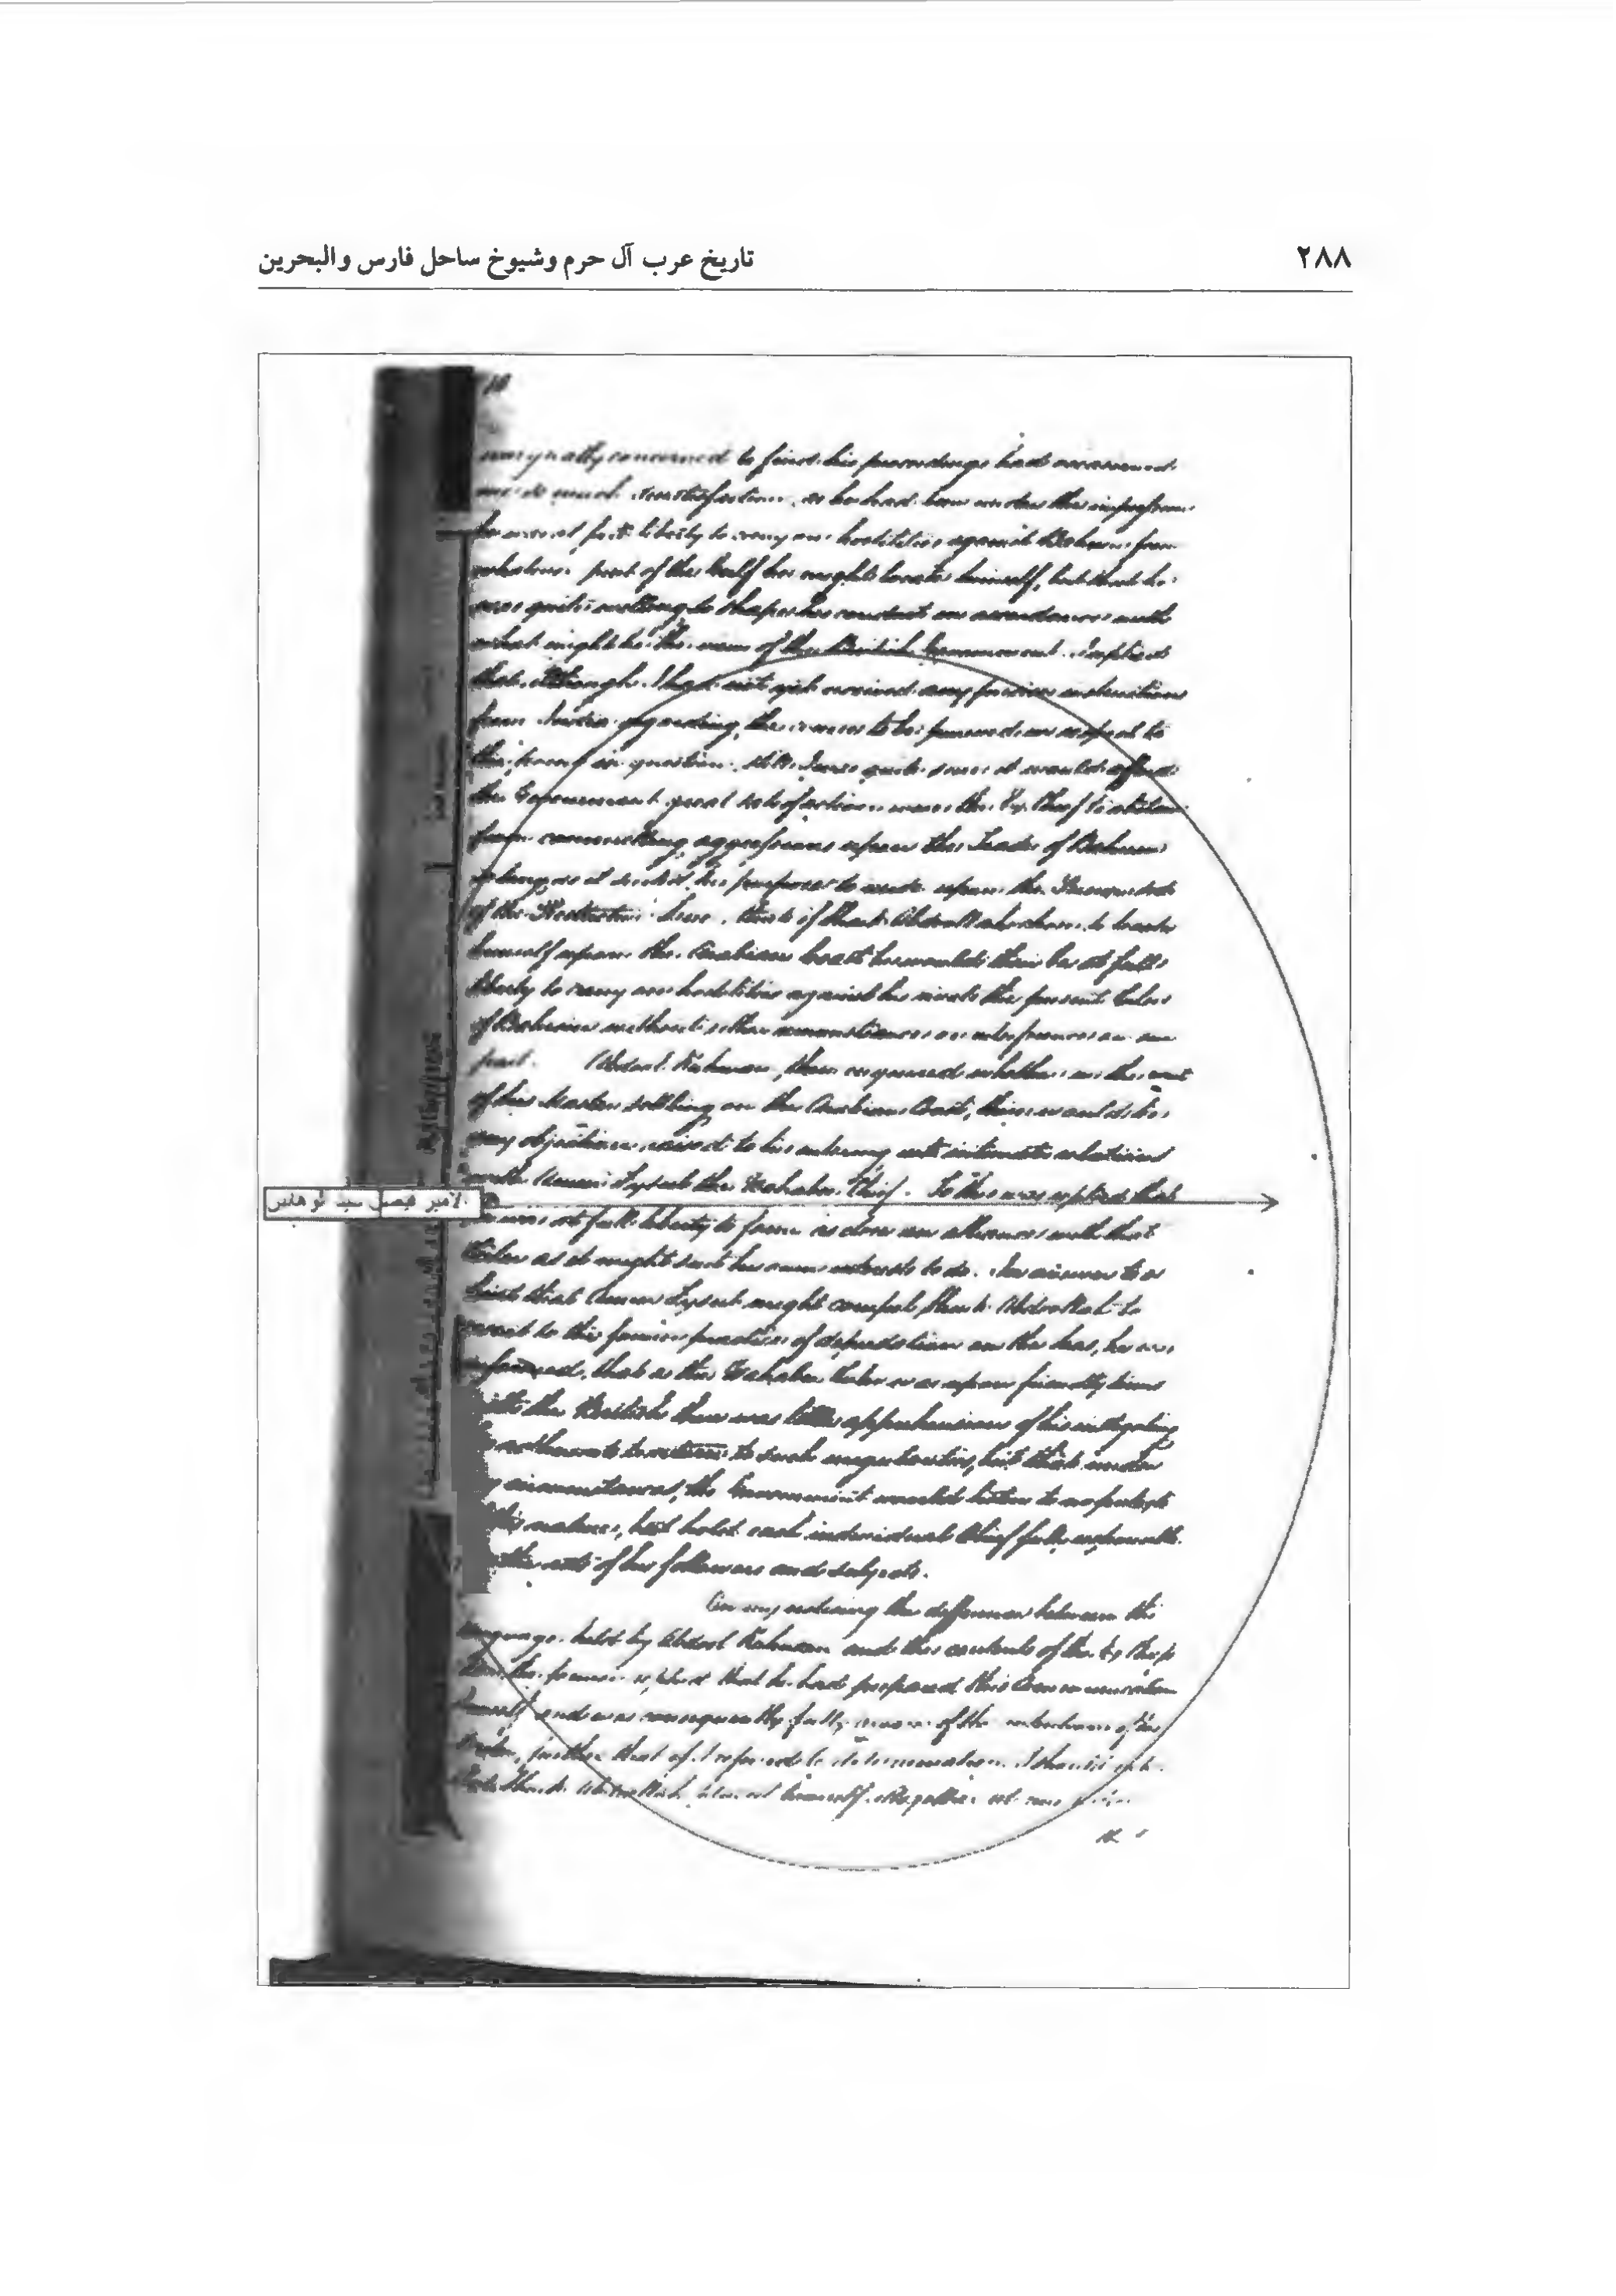 ٢٨٨
تاريخ عرب آل حرم وشيوخ ساحل فارس والبحرين
was greatly concerned to find his proceedings had occasioned
me so much dissatisfaction, as he had been under the impression
he was at full liberty to carry on hostilities against Bahrein from
whatever part of the Gulf he might locate himself, but that he
was quite willing to shape his conduct in accordance with
what might be the views of the British Government. I replied
that, although I had not yet received any precise instructions
from India regarding the course to be pursued in respect to
the point in question, still I was quite sure it would afford
the Government great satisfaction were the Ex Chief to abstain
from committing aggressions upon the Trade of Bahrein
so long as it suited his purposes to reside upon the
of the Restrictive Line, that if Shaik Abdoollah chose to locate
himself upon the Arabian Coast he would then be at full
liberty to carry on hostilities against his rivals the present Rulers
of Bahrein without either remonstrances or interference on our
part. Abdool Rahman, then enquired whether in the event
of his Master settling on the Arabian Coast, there would be
any objections raised to his entering into intimate relations
with Ameer Fysul the Wahabee Chief. To this was replied that
الامير فيصل
he was at full liberty to form as close an alliance with that
Ruler as it might suit his own interests to do. In answer to a
hint that Ameer Fysul might compel Shaik Abdoollah to
revert to the former practices of depredation on the Seas, he was
informed, that as the Wahabee Ruler was upon friendly terms
with the British there was little apprehension of his instigating
to such irregularities, but that under
any circumstances, the Government would listen to no pretexts
of this nature, but hold each individual Chief fully responsible
for the acts of his followers and subjects.
On my noticing the difference between the
language held by Abdool Rahman and the contents of the Ex Chief's
the former replied that he had prepared this communication
himself and was consequently fully aware of the intentions of his
further that if I
Shaik Abdoollah placed himself altogether